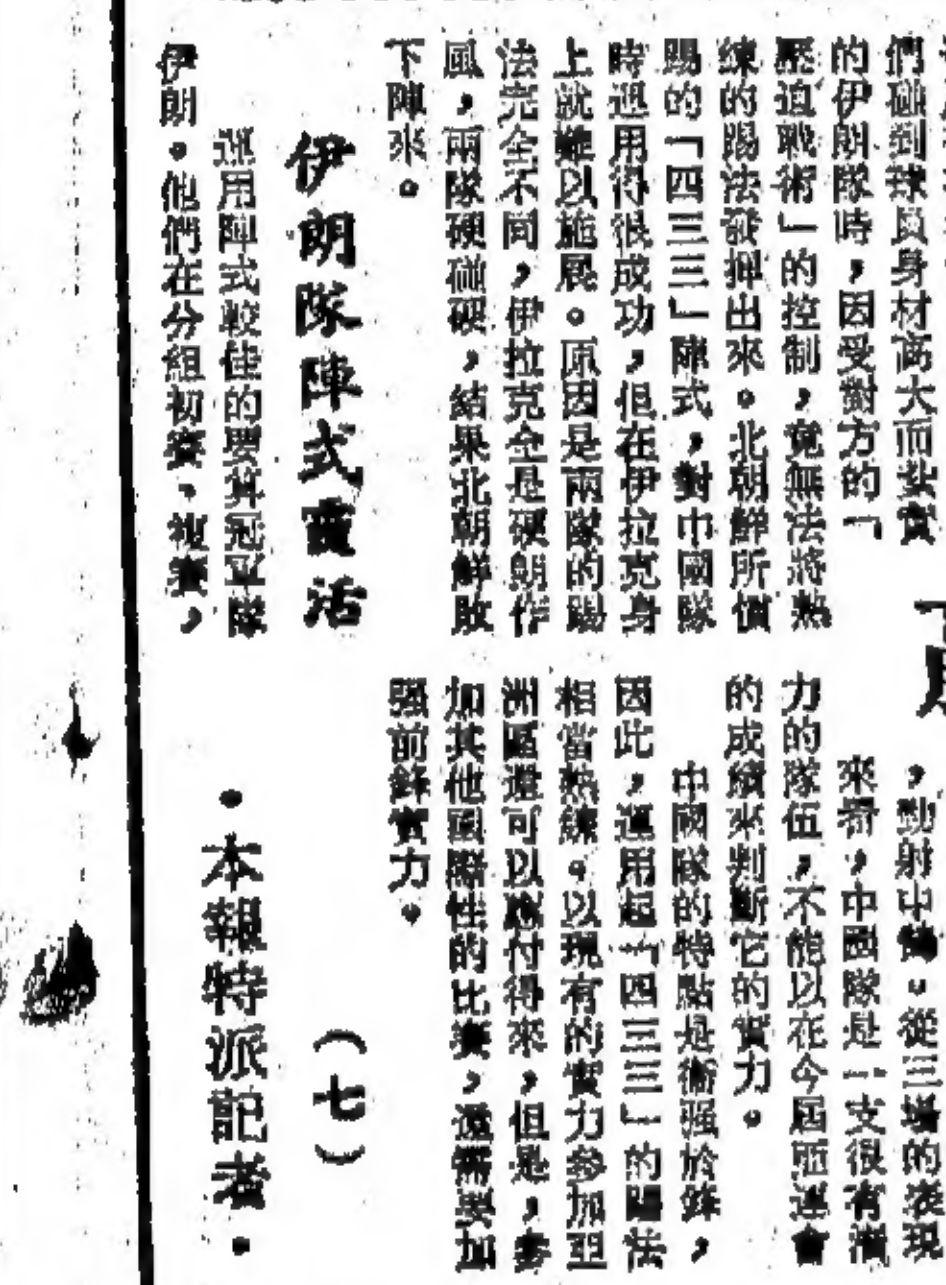 們碰到球員身材高大而紮實
的伊朗隊時，因受對方的「
壓迫戰術」的控制，竟無法將熟
練的踢法發揮出來。北朝鮮所慣
踢的「四三三」陣式，對中國隊
時運用得很成功，但在伊拉克身
上就難以施展。原因是兩隊的踢
法完全不同，伊拉克全是硬朗作
風，兩隊硬碰硬，結果北朝鮮敗
下陣來。
伊朗隊陣式靈活
運用陣式較佳的要算冠軍隊
伊朗。他們在分組初賽、複賽，
，勁射中鵠。從三場的表現
來看，中國隊是一支很有潛
力的隊伍，不能以在今屆亞運會
的成績來判斷它的實力。
中國隊的特點是衛强於鋒，
因此，運用起「四三三」的踢法
相當熟練。以現有的實力參加亞
洲區還可以應付得來，但是，參
加其他國際性的比賽，還需要加
强前鋒實力。
（七）
•本報特派記者•